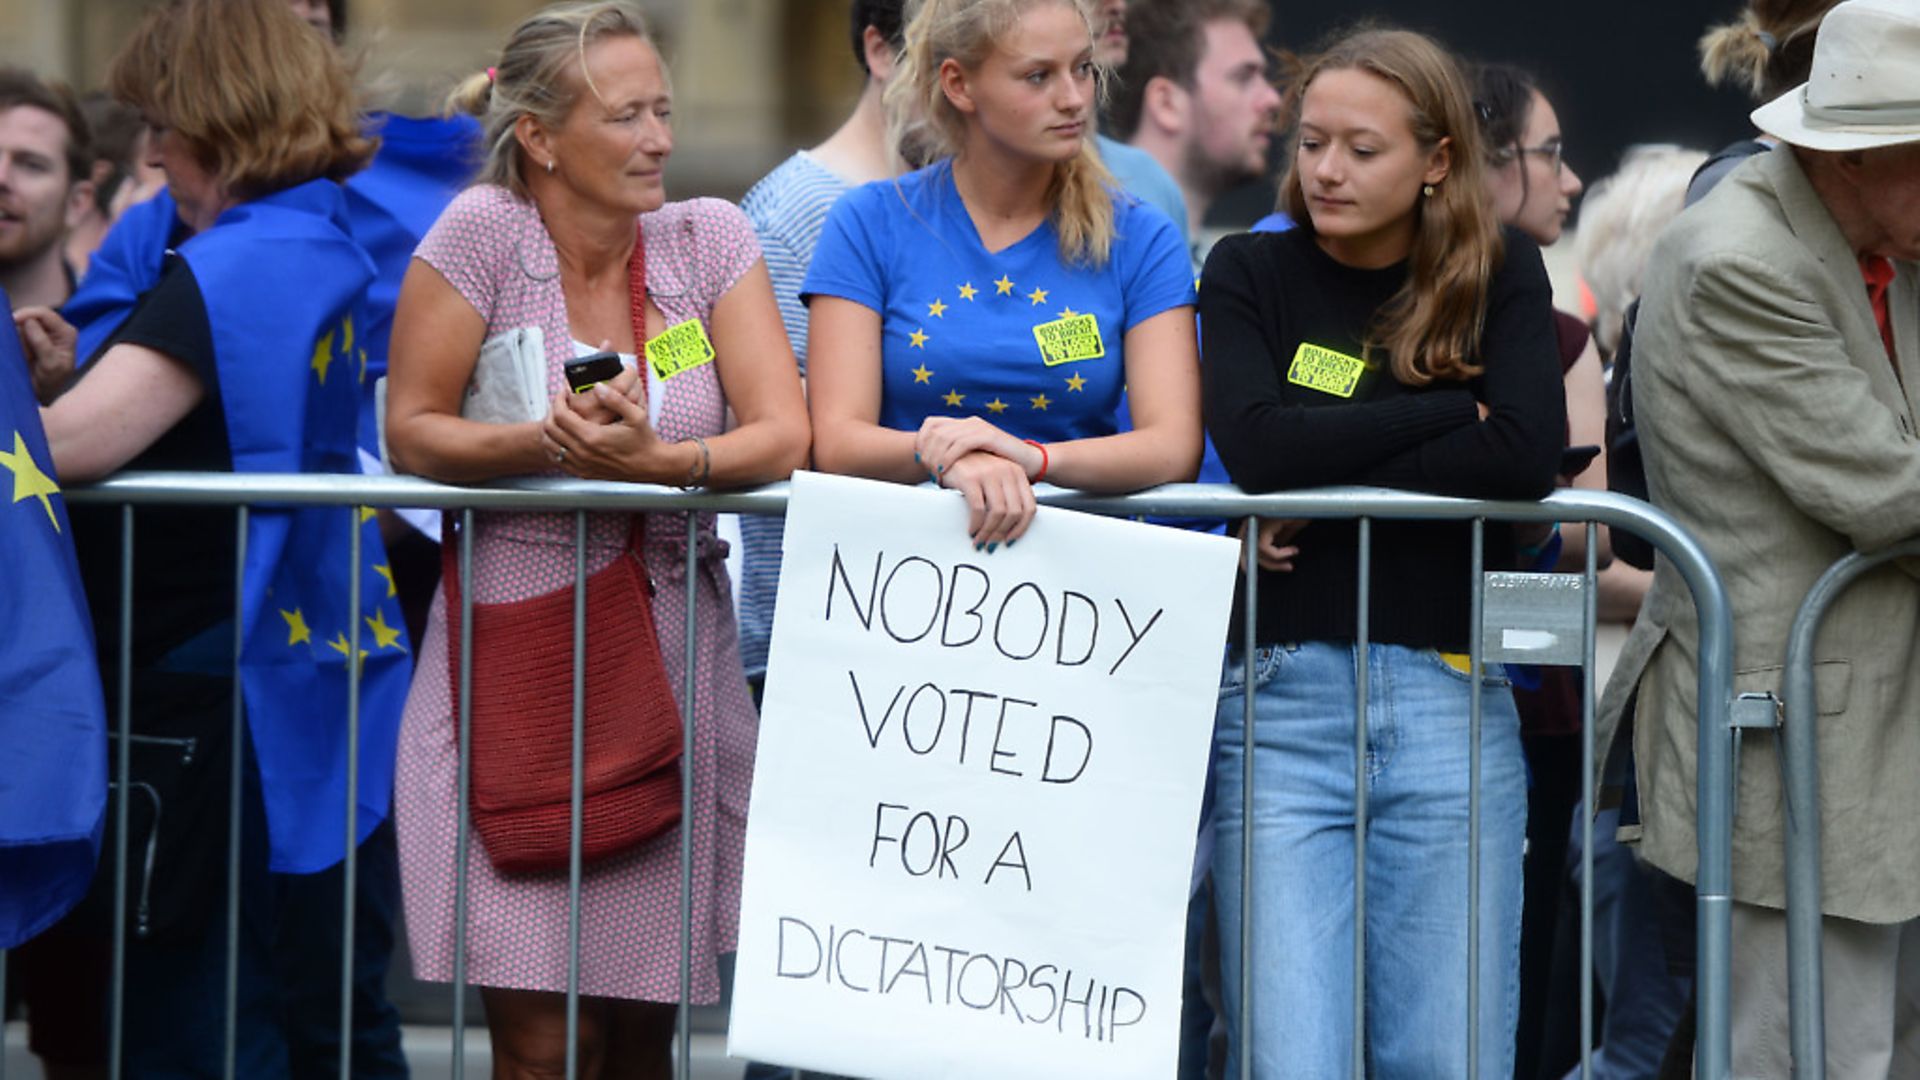 NOBODY
VOTED
FOR A
DICTATORSHIP
BOLLOCKS
TO BREXIT
BOLLOCKS
TO BREXIT
BOLLOCKS
TO BREXIT